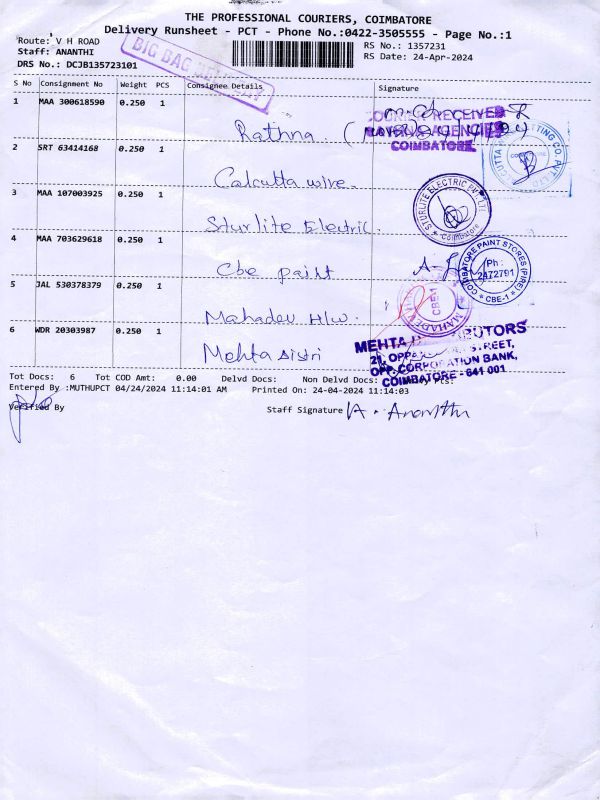 THE PROFESSIONAL COURIERS, COIMBATORE
Delivery Runsheet - PCT - Phone No.:0422-3505555 - Page No.:1
Route: V H ROAD
RS No.: 1357231
Staff: ANANTHI
RS Date: 24-Apr-2024
DRS No.: DCJB135723101
BIG BAG
S No Consignment No Weight PCS Consignee Details Signature
1 MAA 300618590 0.250 1
Rathna
RECEIVED
AGENCIES
COIMBATORE
2 SRT 63414168 0.250 1
Calcutta wire
3 MAA 107003925 0.250 1
Sturlite Electric
STURLITE ELECTRIC PVT LTD
Coimbatore
4 MAA 703629618 0.250 1
Cbe paint
COIMBATORE PAINT STORES (FIRE)
Ph :
2472791
CBE-1
5 JAL 530378379 0.250 1
Mahadev H/w
MAHADEV
CBE-1
6 WDR 20303987 0.250 1
Mehta Distri
MEHTA
STREET,
OPP. CORPORATION BANK,
COIMBATORE - 641 001
Tot Docs: 6 Tot COD Amt: 0.00 Delvd Docs: Non Delvd Docs:
Entered By :MUTHUPCT 04/24/2024 11:14:01 AM Printed On: 24-04-2024 11:14:03
Verified By
Staff Signature A. Ananthi